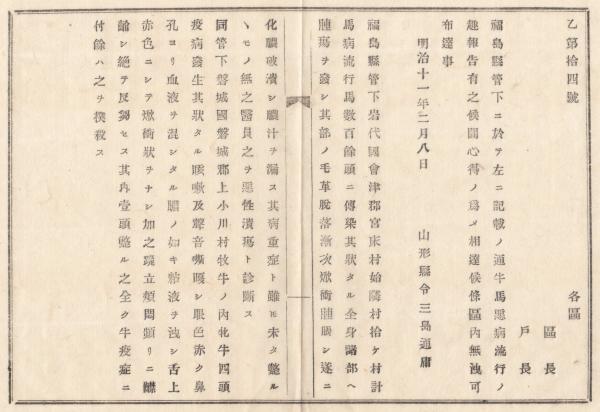 乙第拾四號
各區
區長
戶長
福島縣管下ニ於テ左ニ記載ノ通牛馬惡病流行ノ
趣報告有之候間心得ノ爲メ相達候條區內無洩可
布達事
明治十一年二月八日
山形縣令三島通庸
福島縣管下岩代國會津郡宮床村始隣村拾ケ村計
馬病流行馬數百餘頭ニ傳染其狀タル全身諸部ヘ
腫瘍ヲ發シ其部ノ毛革脫落漸次焮衝腫脹シ遂ニ
化膿破潰シ膿汁ヲ漏ス其病重症ト雖モ未タ斃ル
ヽモノ無之醫員之ヲ惡性潰瘍ト診斷ス
同管下磐城國磐城郡上小川村牧牛ノ內牝牛四頭
疫病發生其狀タル咳嗽及聲音嘶嗄シ眼色赤ク鼻
孔ヨリ血液ヲ混シタル膿ノ如キ粘液ヲ洩シ舌上
赤色ニシテ焮衝狀ヲナシ加之起立煩悶頻リニ
齝シ絕テ反芻セス其內壹頭斃ル之全ク牛疫症ニ
付餘ハ之ヲ撲殺ス